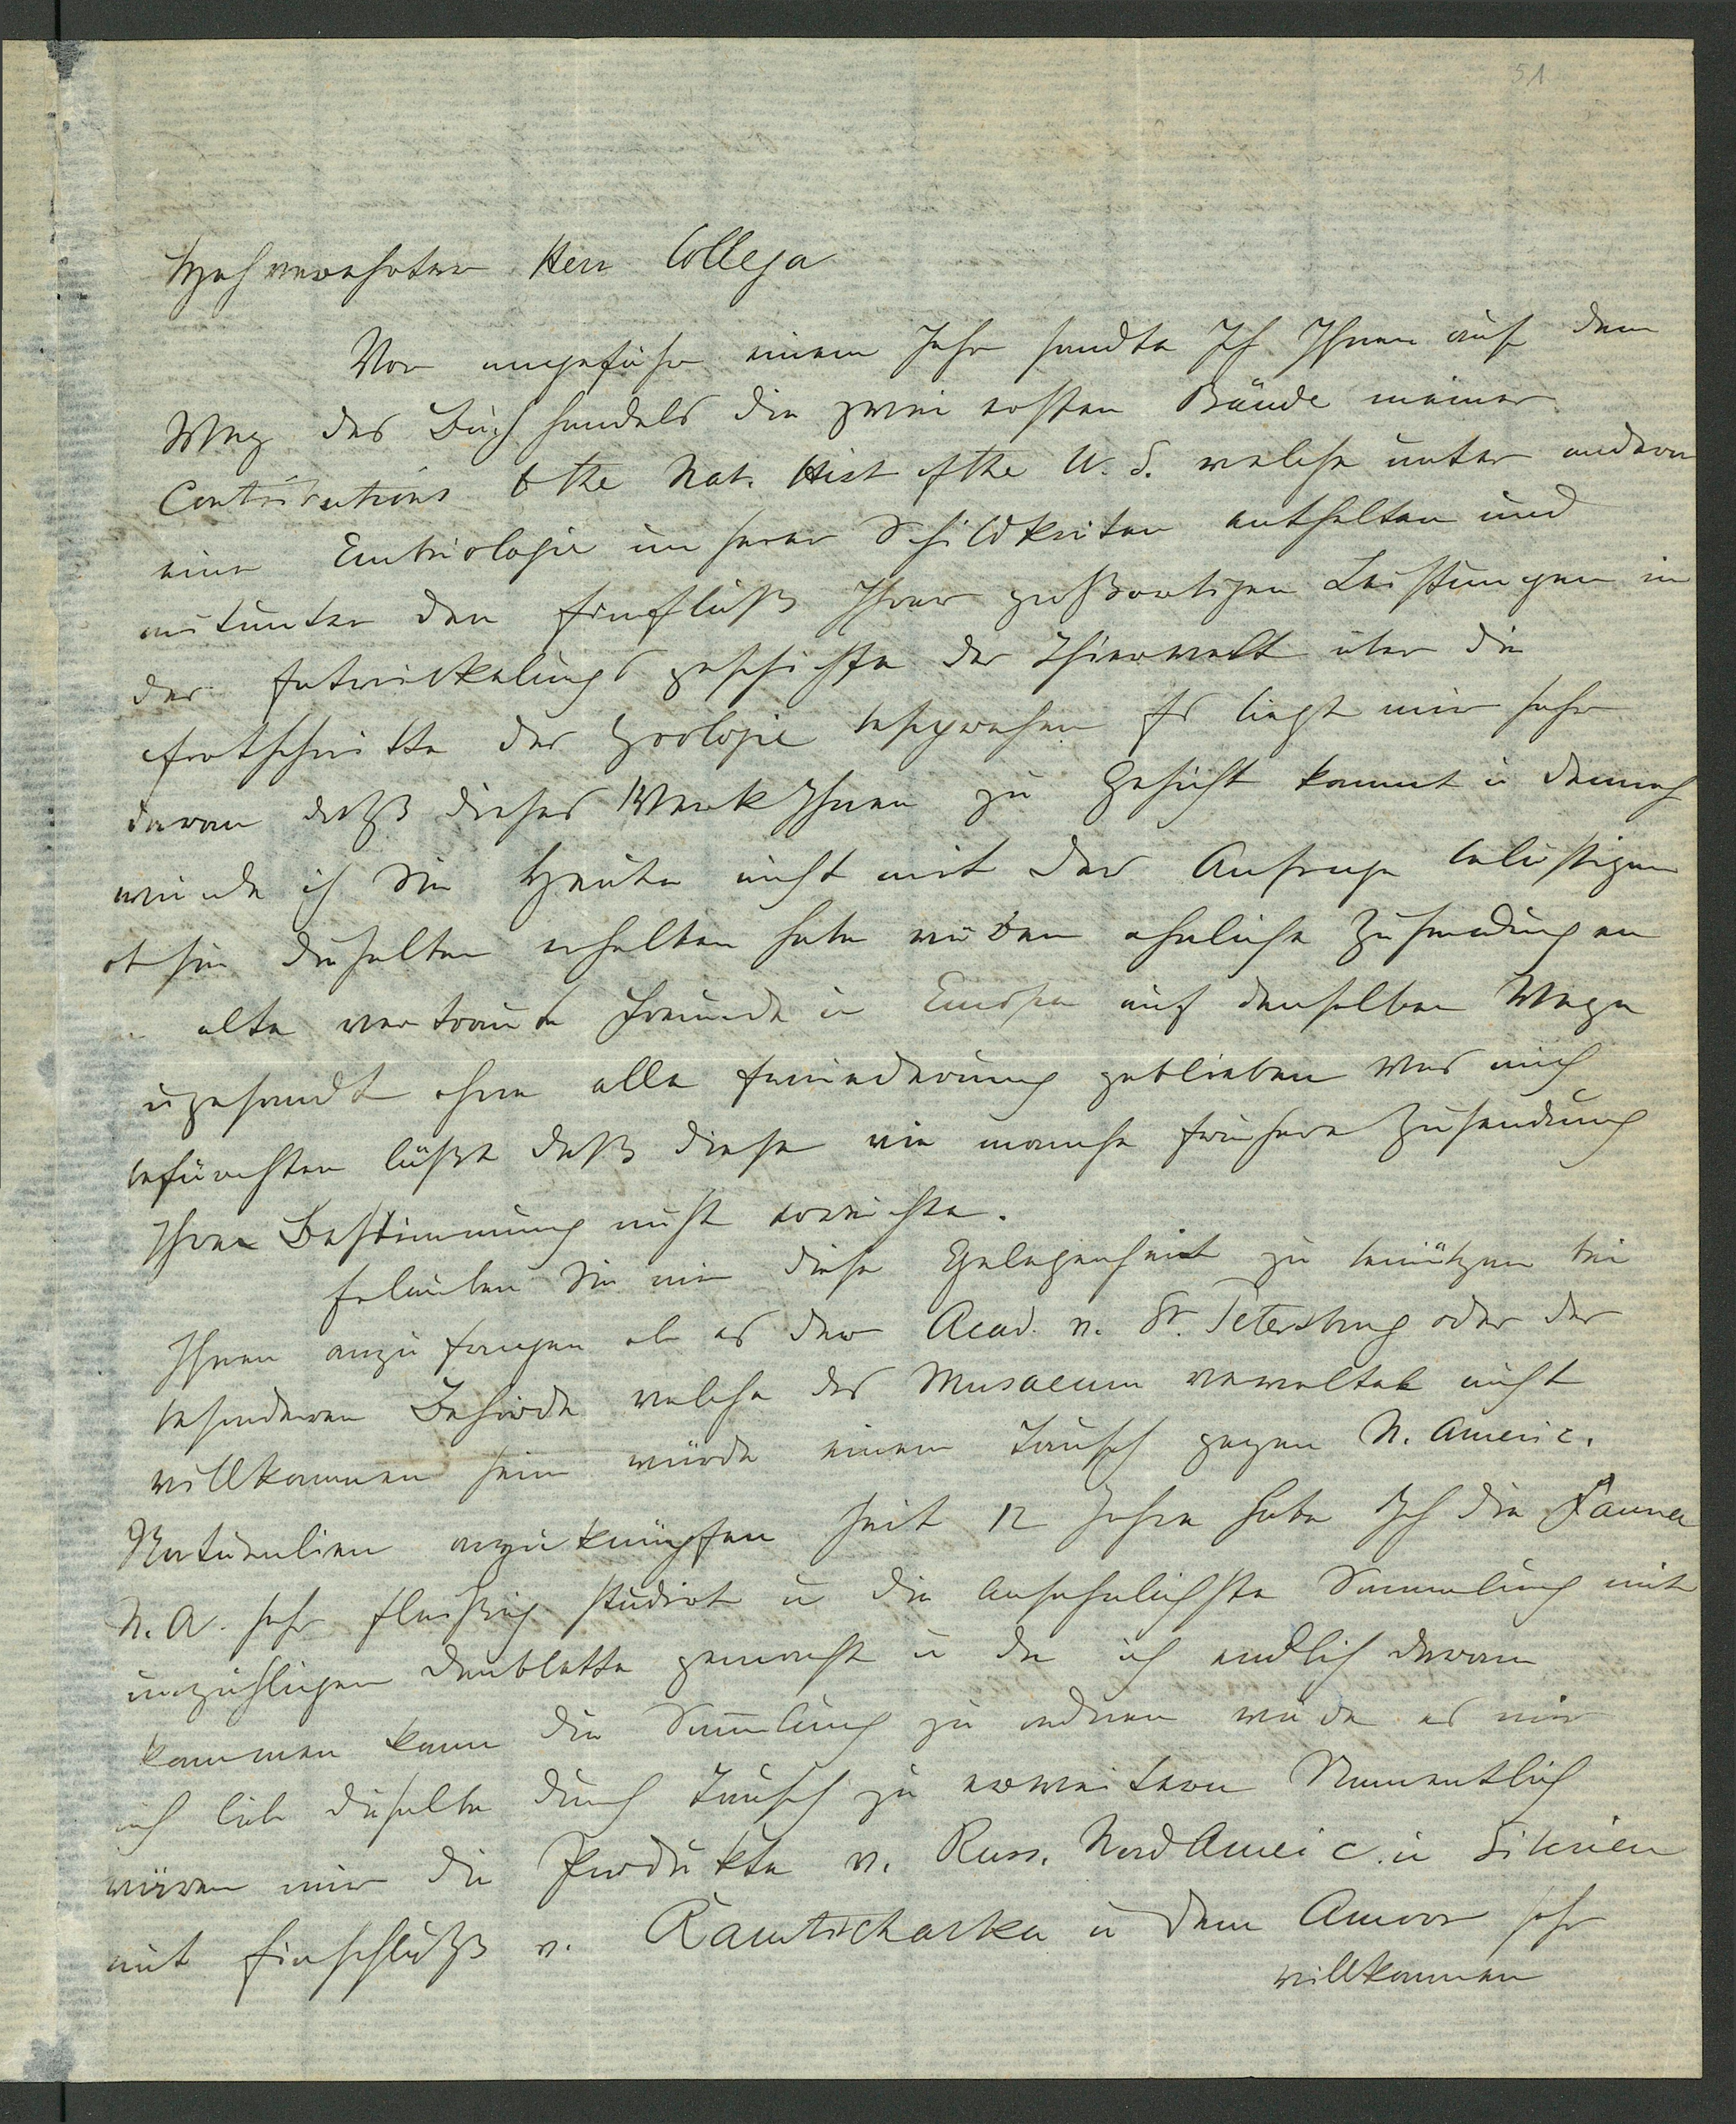 51
Hochverehrter Herr Collega
Vor ungefähr einem Jahr sandte Ich Ihnen auf dem
Weg des Buchhandels die zwei ersten Bände meiner
Contributions to the Nat. Hist of the U. S. welche unter andern
eine Embriologie unserer Schildkröten enthalten und
mitunter den Einfluß Ihrer großartigen Leistungen in
der Entwickelungsgeschichte der Thierwelt über die
Fortschritte der Zoologie besprechen Es liegt mir sehr
daran daß dieses Werk Ihnen zu Gesicht kommt u dennoch
würde ich Sie Heute nicht mit der Anfrage belästigen
ob Sie dieselben erhalten habe würden ähnliche Zusendungen
alte vertraute Freunde in Europa auf denselben Wege
zugesandt ohne alle Erwiederung geblieben was mich
befürchten läßt daß diese wie manche frühere Zusendung
Ihrer Bestimmung nicht erreichte.
Erlauben Sie mir diese Gelegenheit zu benützen bei
Ihnen anzufragen ob es der Acad. v. St. Petersburg oder der
besonderen Behörde welche das Musaeum verwaltet nicht
willkommen sein würde einen Tausch gegen N. Americ.
Naturalien anzuknüpfen Seit 12 Jahre habe Ich die Fauna
N. A. sehr fleißig studirt u die ansehnlichste Sammlung mit
unzähligen Doublette gemacht u da ich endlich daran
kommen kann die Sammlung zu ordnen würde es mir
auch lieb dieselbe durch Tausch zu erweitern Namentlich
wären mir die Produkte v. Russ. Nord Americ. u Siberien
mit Einschluß v. Kamtschatka u dem Amoor sehr
willkommen